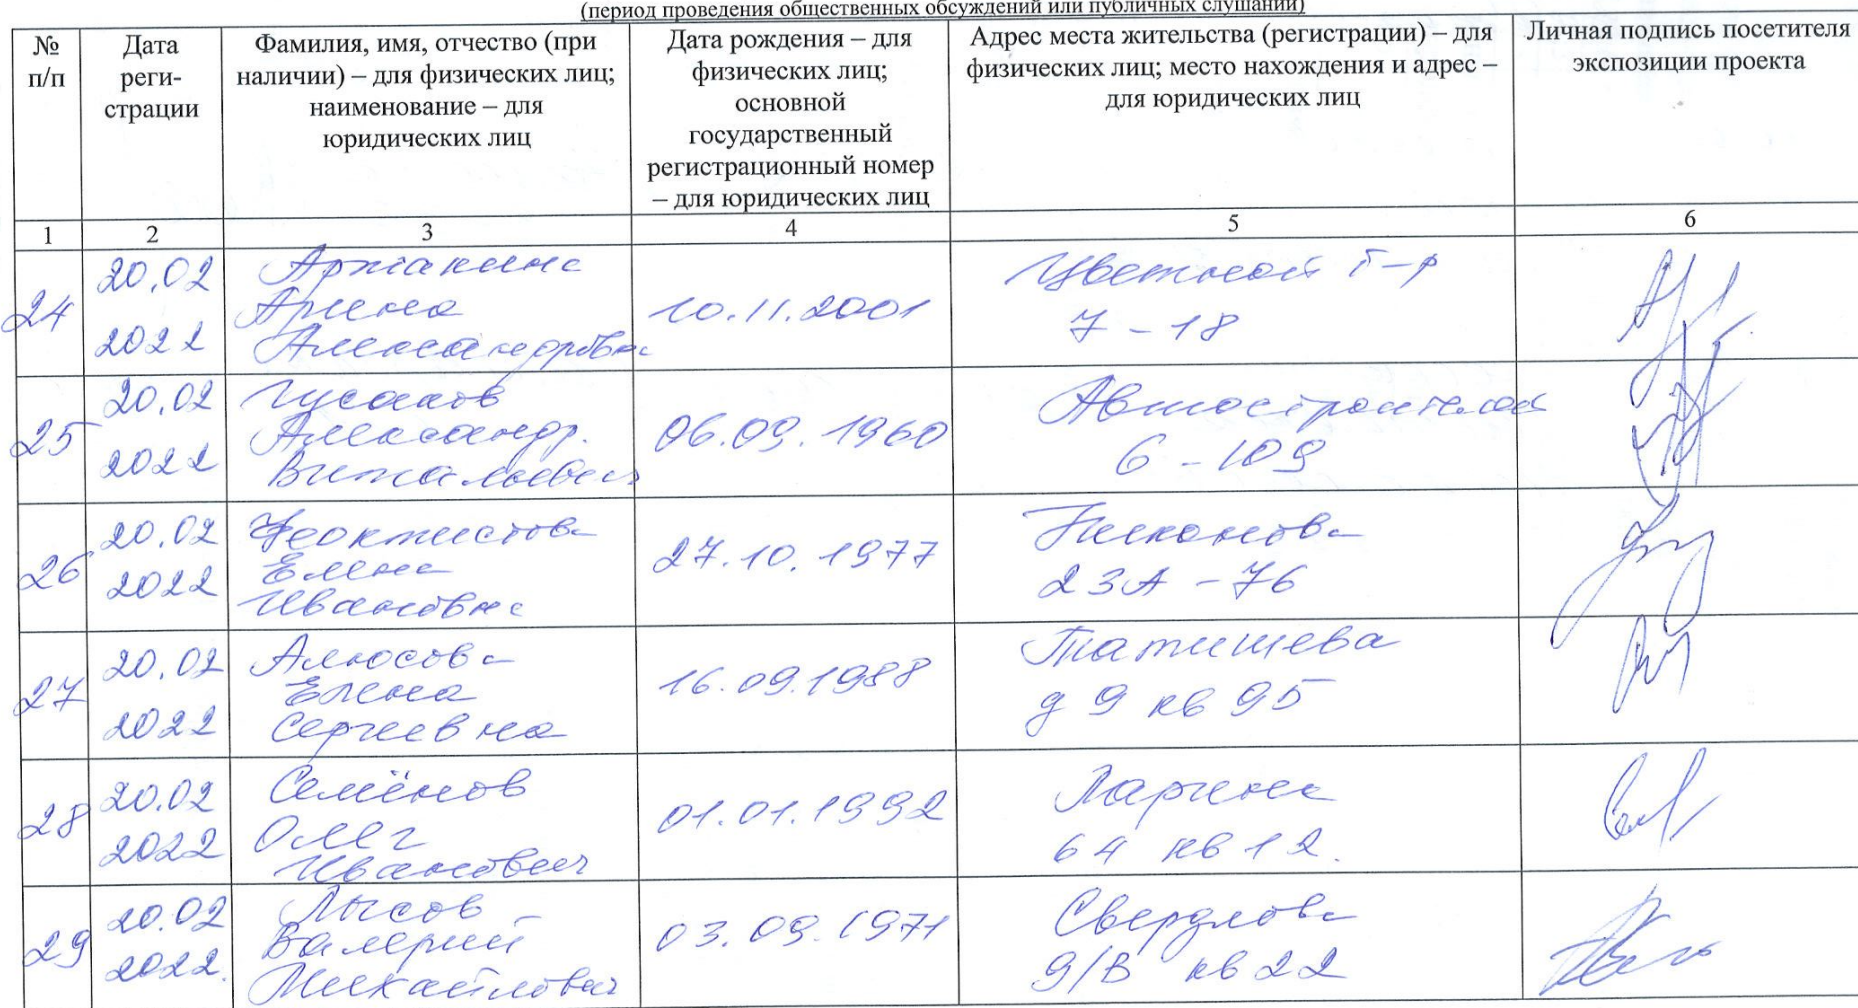 (период проведения общественных обсуждений или публичных слушаний)
№ п/п
Дата реги-страции
Фамилия, имя, отчество (при наличии) – для физических лиц; наименование – для юридических лиц
Дата рождения – для физических лиц; основной государственный регистрационный номер – для юридических лиц
Адрес места жительства (регистрации) – для физических лиц; место нахождения и адрес – для юридических лиц
Личная подпись посетителя экспозиции проекта
1 2 3 4 5 6
24
20.02
2022
Аржакина
Арина
Александровна
10.11.2001
Цветной б-р
7 - 18
25
20.02
2022
Гусаков
Александр.
Витальевич
06.09.1960
Автостроителей
6 - 109
26
20.02
2022
Феоктистова
Елена
Ивановна
27.10.1977
Никонова
23А - 76
27
20.02
2022
Алюсова
Елена
Сергеевна
16.09.1988
Татишева
д 9 кв 95
28
20.02
2022
Семёнов
Олег
Иванович
01.01.1992
Ларина
64 кв 12.
29
20.02
2022.
Лысов
Валерий
Михайлович
03.09.1971
Свердлова
9/В кв 22